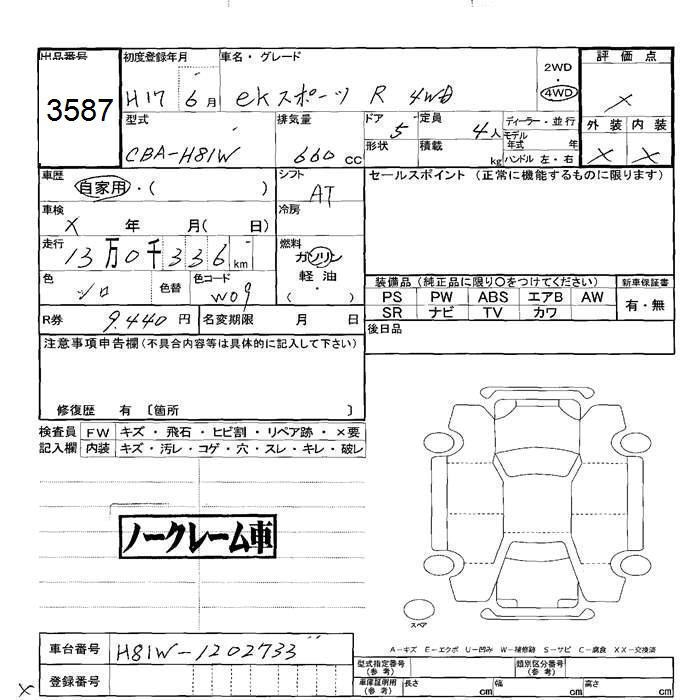 出品番号
3587
初度登録年月
H17 6月
車名・グレード
eKスポーツ R 4WD
2WD
・
4WD
評価点
×
外装 内装
× ×
型式
CBA-H81W
排気量
660 cc
ドア
5
形状
定員
4人
積載
kg
ディーラー・並行
モデル年式 年
ハンドル 左・右
車歴
自家用・( )
シフト
AT
車検
× 年 月( 日)
冷房
走行
13万0千336km
燃料
ガソリン
軽油
・
( )
色
シロ
色替
色コード
W09
R券 9.440円
名変期限 月 日
セールスポイント (正常に機能するものに限ります)
装備品 (純正品に限り○をつけてください)
新車保証書
PS PW ABS エアB AW
SR ナビ TV カワ
有・無
後日品
注意事項申告欄(不具合内容等は具体的に記入して下さい)
修復歴 有 〔箇所 〕
検査員記入欄
FW キズ・飛石・ヒビ割・リペア跡・×要
内装 キズ・汚レ・コゲ・穴・スレ・キレ・破レ
ノークレーム車
スペア
A-キズ E-エクボ U-凹み W-補修跡 S-サビ C-腐食 XX-交換済
車台番号 H81W-1202733
登録番号
×
型式指定番号(参考)
類別区分番号(参考)
車庫証明用(参考)
長さ cm
幅 cm
高さ cm